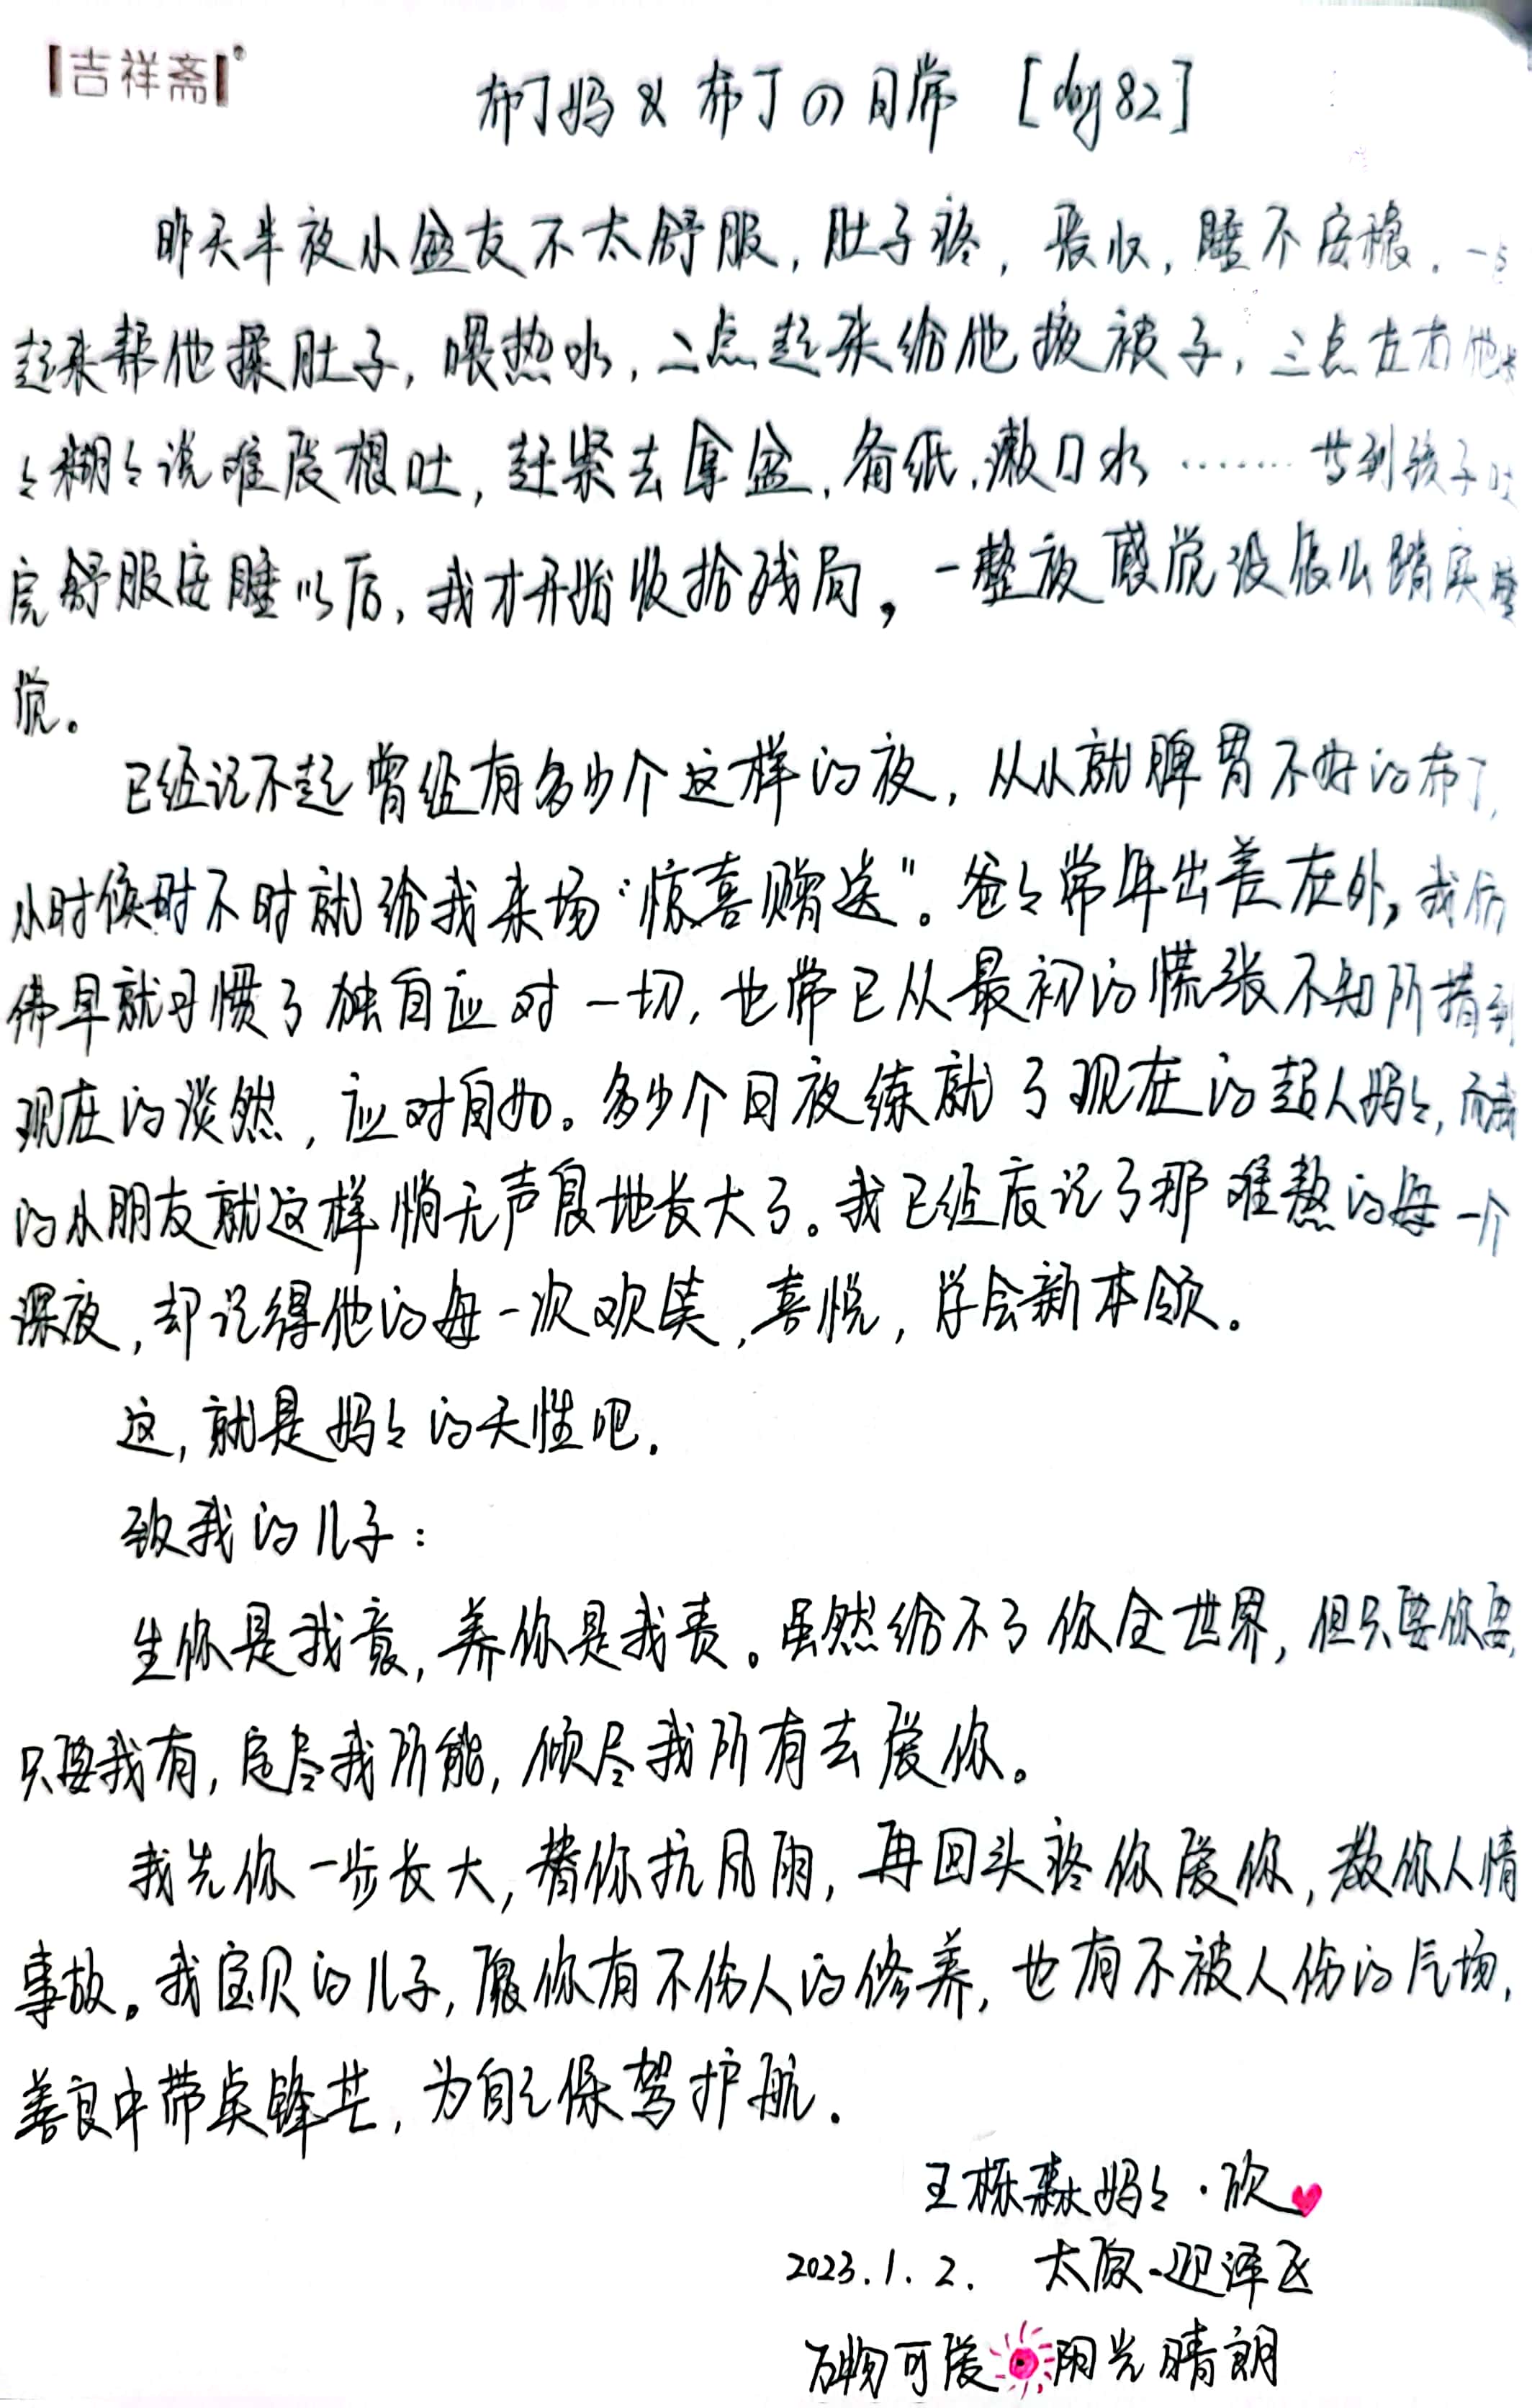 吉祥斋
布丁妈&布丁の日常 [day 82]
昨天半夜小盆友不太舒服,肚子疼,发烧,睡不安稳。一点
起来帮他揉肚子,喂热水,二点起来给他掖被子,三点左右他迷
々糊々说难受想吐,赶紧去拿盆,备纸,漱口水……等到孩子吐
完舒服安睡以后,我才开始收拾残局,一整夜感觉没怎么踏实睡
觉。
已经记不起曾经有多少个这样的夜,从小就脾胃不好的布丁,
小时候时不时就给我来场“惊喜赠送”。爸々常年出差在外,我仿
佛早就习惯了独自应对一切,也常已从最初的慌张不知所措到
现在的淡然,应对自如。多少个日夜练就了现在的超人妈々,而我
的小朋友就这样悄无声息地长大了。我已经忘记了那难熬的每一个
深夜,却记得他的每一次欢笑,喜悦,学会新本领。
这,就是妈々的天性吧.
致我的儿子:
生你是我意,养你是我责。虽然给不了你全世界,但只要你要,
只要我有,定尽我所能,倾尽我所有去爱你。
我先你一步长大,替你抗风雨,再回头疼你爱你,教你人情
事故。我宝贝的儿子,愿你有不伤人的修养,也有不被人伤的气场,
善良中带点锋芒,为自己保驾护航.
王栎森妈々·欣
2023.1.2. 太原·迎泽区
万物可爱 阳光晴朗